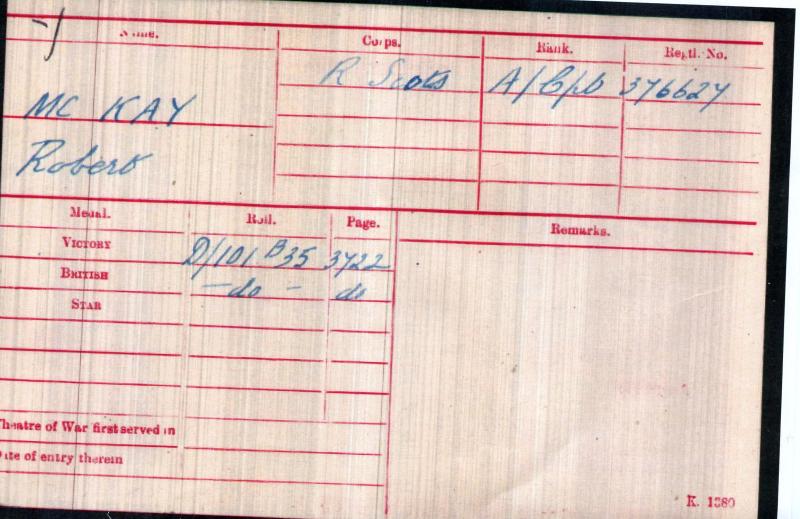 Name. Corps. Rank. Regtl. No.
R Scots A/Cpl 376627
MC KAY
Robert
Medal. Roll. Page. Remarks.
VICTORY D/101 B35 3722
BRITISH - do - do
STAR
Theatre of War first served in
Date of entry therein
K. 1380